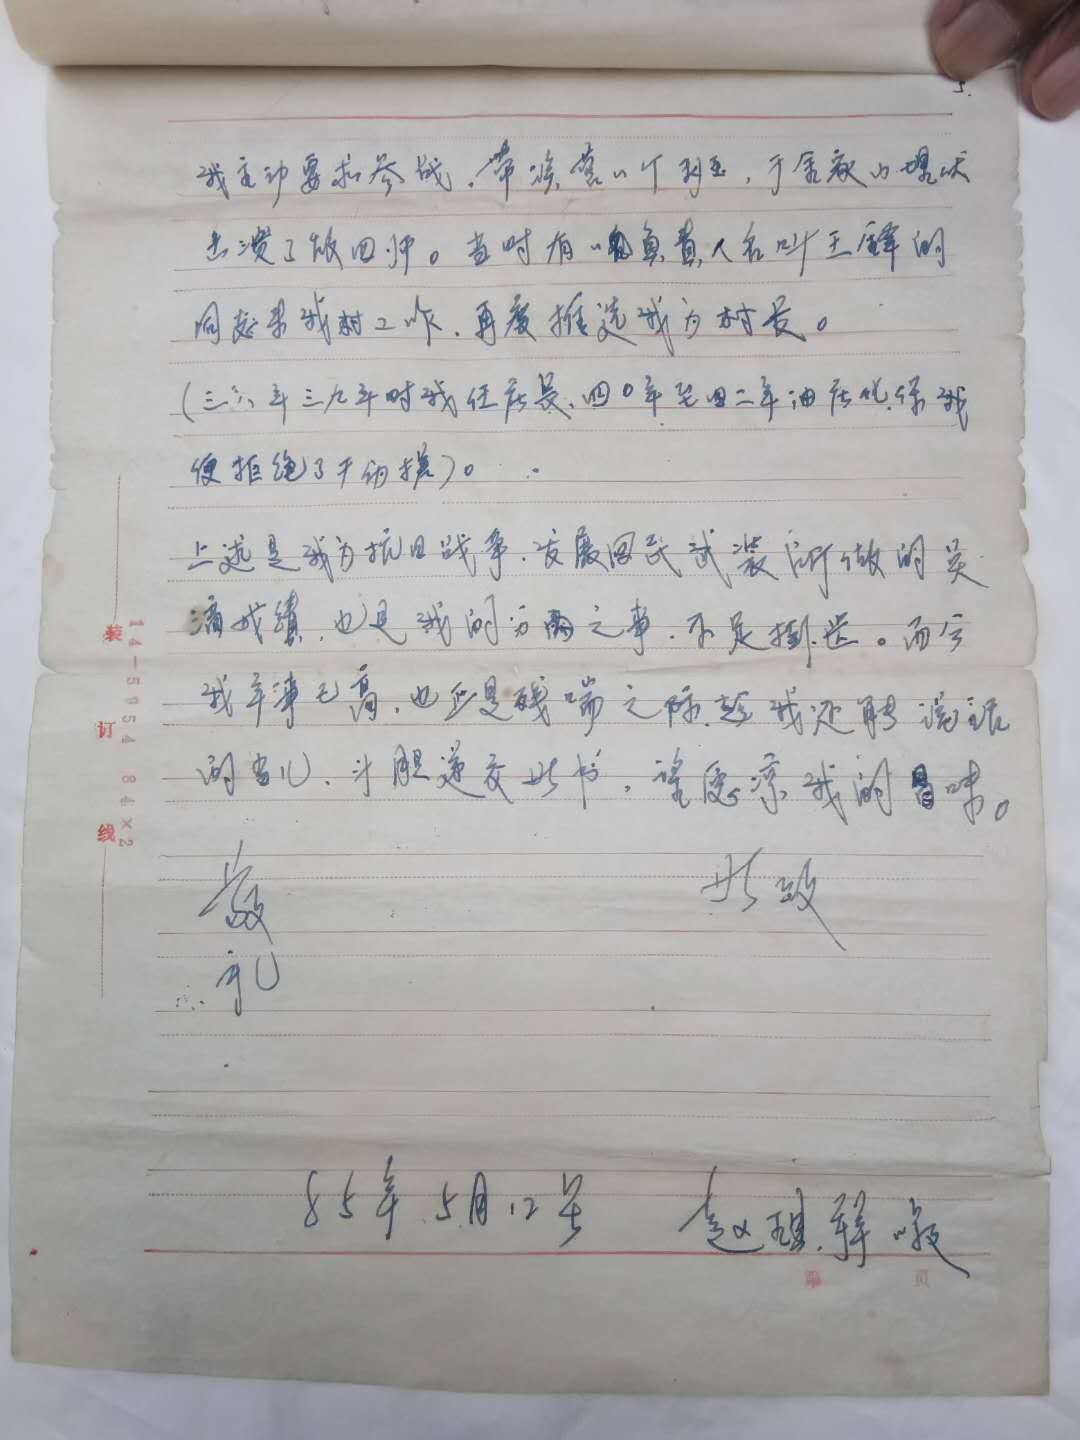 5.
我主动要求参战，带领营八个班至，于金家山埋伏
击溃了敌四师。当时有负责人名叫王锋的
同志来我村工作，再度推选我为村长。
(三六年三九年时我任店长，四0年至四二年油店优保我
便拒绝了干的推)。
上述是我为抗日战争，发展回民武装所做的点
滴成绩，也是我的分内之事，不足挂齿。而今
我年事已高，也正是残喘之际，趁我还能说话
的当儿，斗胆递交此书，望原谅我的冒昧。
此致
敬
礼
85年5月12号 赵
装订线
14-5054 84×2
第 页